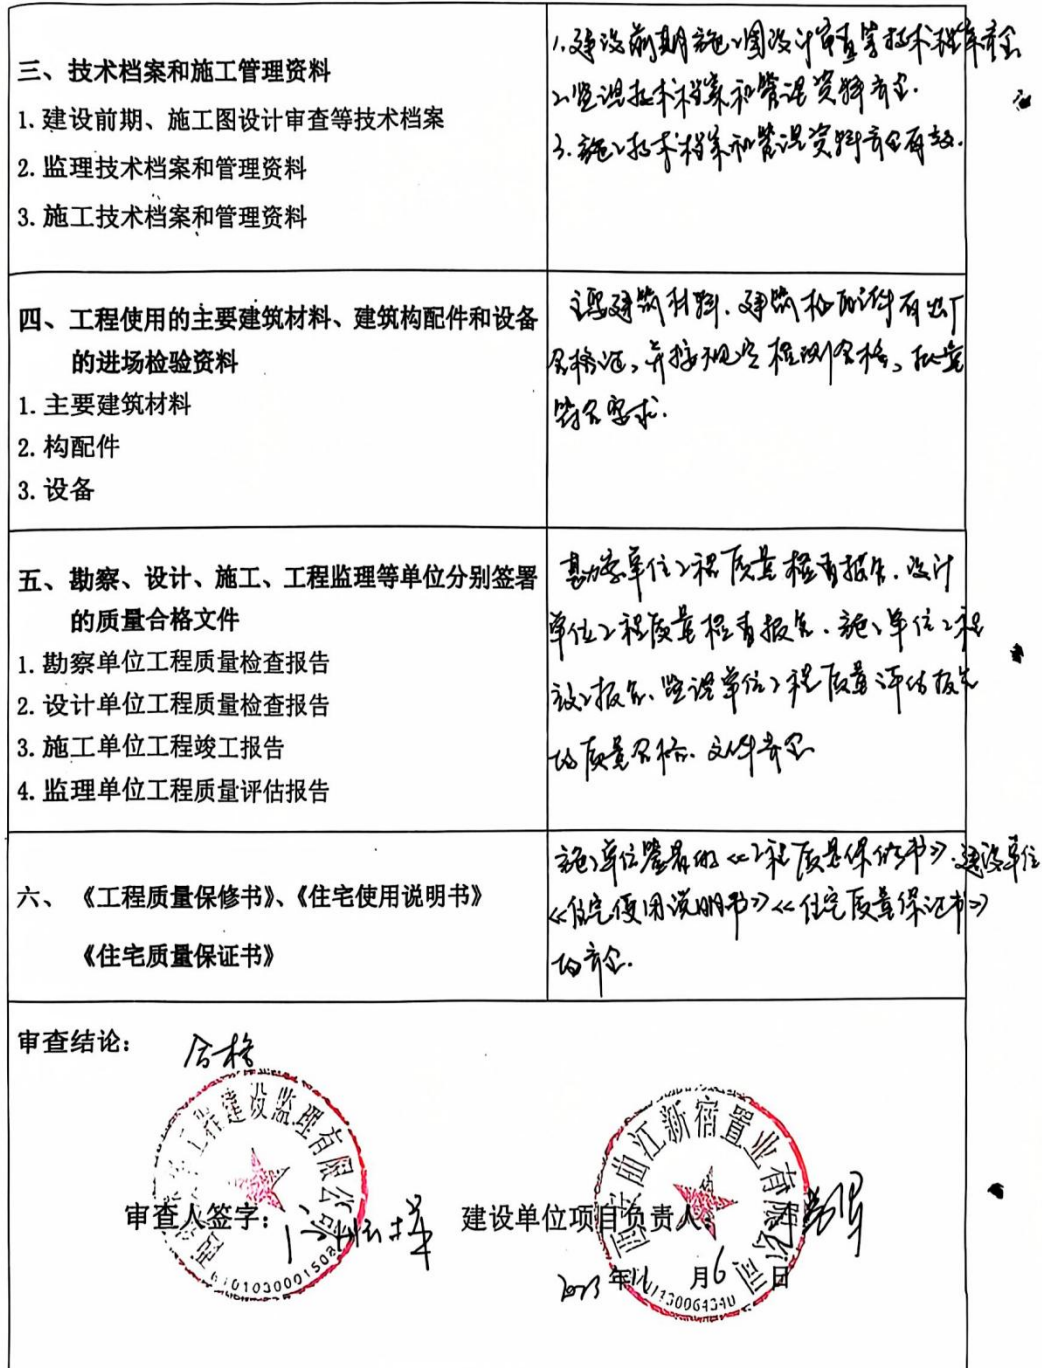 三、技术档案和施工管理资料
1.建设前期、施工图设计审查等技术档案
2.监理技术档案和管理资料
3.施工技术档案和管理资料
1.建设前期施工图设计审查等技术档案齐全
2.监理技术档案和管理资料齐全.
3.施工技术档案和管理资料齐全有效.
四、工程使用的主要建筑材料、建筑构配件和设备
的进场检验资料
1.主要建筑材料
2.构配件
3.设备
主要建筑材料、建筑构配件有出厂
合格证,并按规定检测合格,
符合要求.
五、勘察、设计、施工、工程监理等单位分别签署
的质量合格文件
1.勘察单位工程质量检查报告
2.设计单位工程质量检查报告
3.施工单位工程竣工报告
4.监理单位工程质量评估报告
勘察单位工程质量检查报告、设计
单位工程质量检查报告、施工单位工程
竣工报告、监理单位工程质量评估报告
均质量合格、文件齐全
六、《工程质量保修书》、《住宅使用说明书》
《住宅质量保证书》
施工单位签署的《工程质量保修书》、建设单位
《住宅使用说明书》《住宅质量保证书》
均齐全.
审查结论：
合格
工程建设监理有限公司
曲江新宿置业有限公司
审查人签字：
建设单位项目负责人：
2023年11月6日